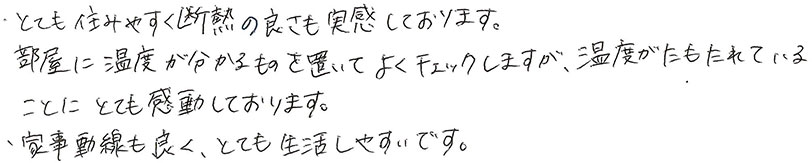 ・とても住みやすく断熱の良さも実感しております。
部屋に温度が分かるものを置いてよくチェックしますが、温度がたもたれている
ことにとても感動しております。
・家事動線も良く、とても生活しやすいです。